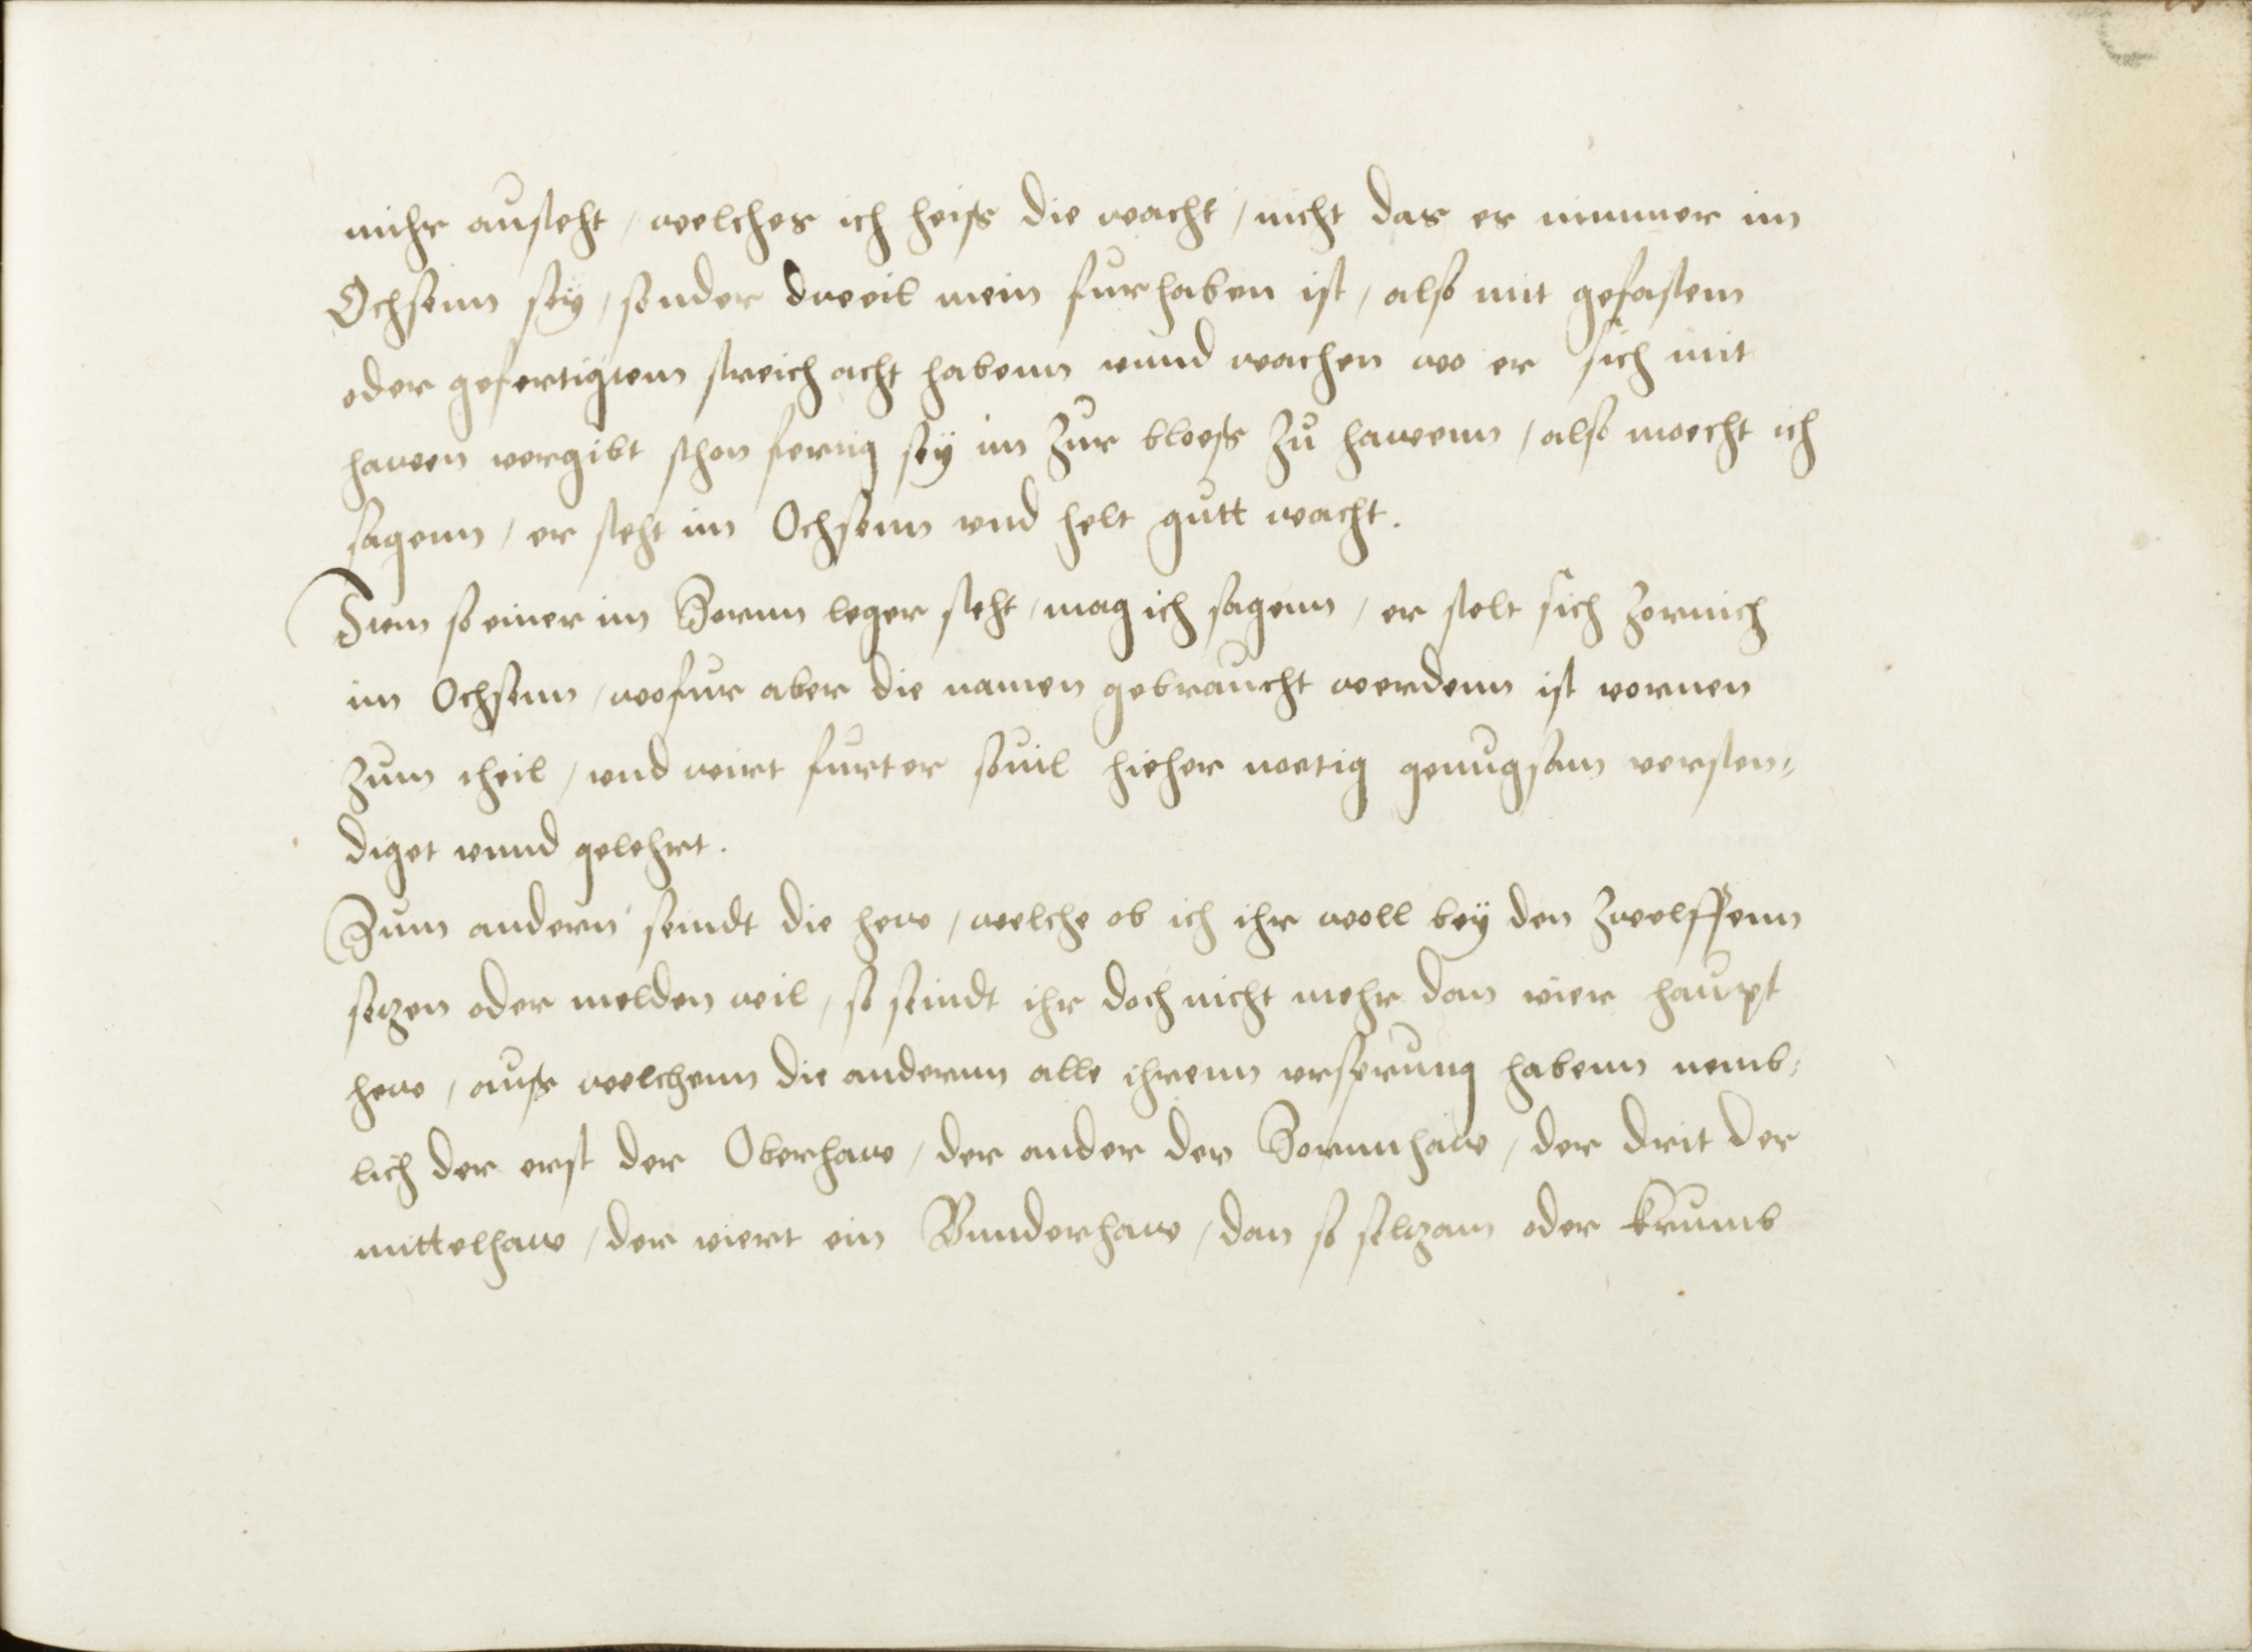 mihr aufzeht / welches ich heiss die wacht / nicht das es immer im
Ochsenn sey / sonder dweil mein furhaben ist / also mit gefastem
oder gefertigtem streich acht habenn vnnd wachen wo er sich mit
hawen vergibt schon fertig sey im zur bloess zu hawenn / also moecht ich
sagenn / er steht im Ochsenn vnd helt gutt wacht.
Item so einer im Zornn leger steht / mag ich sagenn / er stelt sich zornich
im Ochsenn / wofur aber die namen gebraucht werdenn ist vornen
zum theil / vnd wirt furter souil hieher noetig genugsam versten⸗
diget vnnd gelehrt.
Zum andern seindt die hew / welche ob ich ihr woll bey den zwelffenn
setzen oder melden wil / so seindt ihr doch nicht mehr dan vier haupt
hew / auss welchenn die andernn alle ihrenn vrsprung habenn nemb⸗
lich der erst der Oberhaw / der ander der Zornnhaw / der drit der
mittelhaw / der viert ein Vnnderhaw / dan so seltzam oder krumb